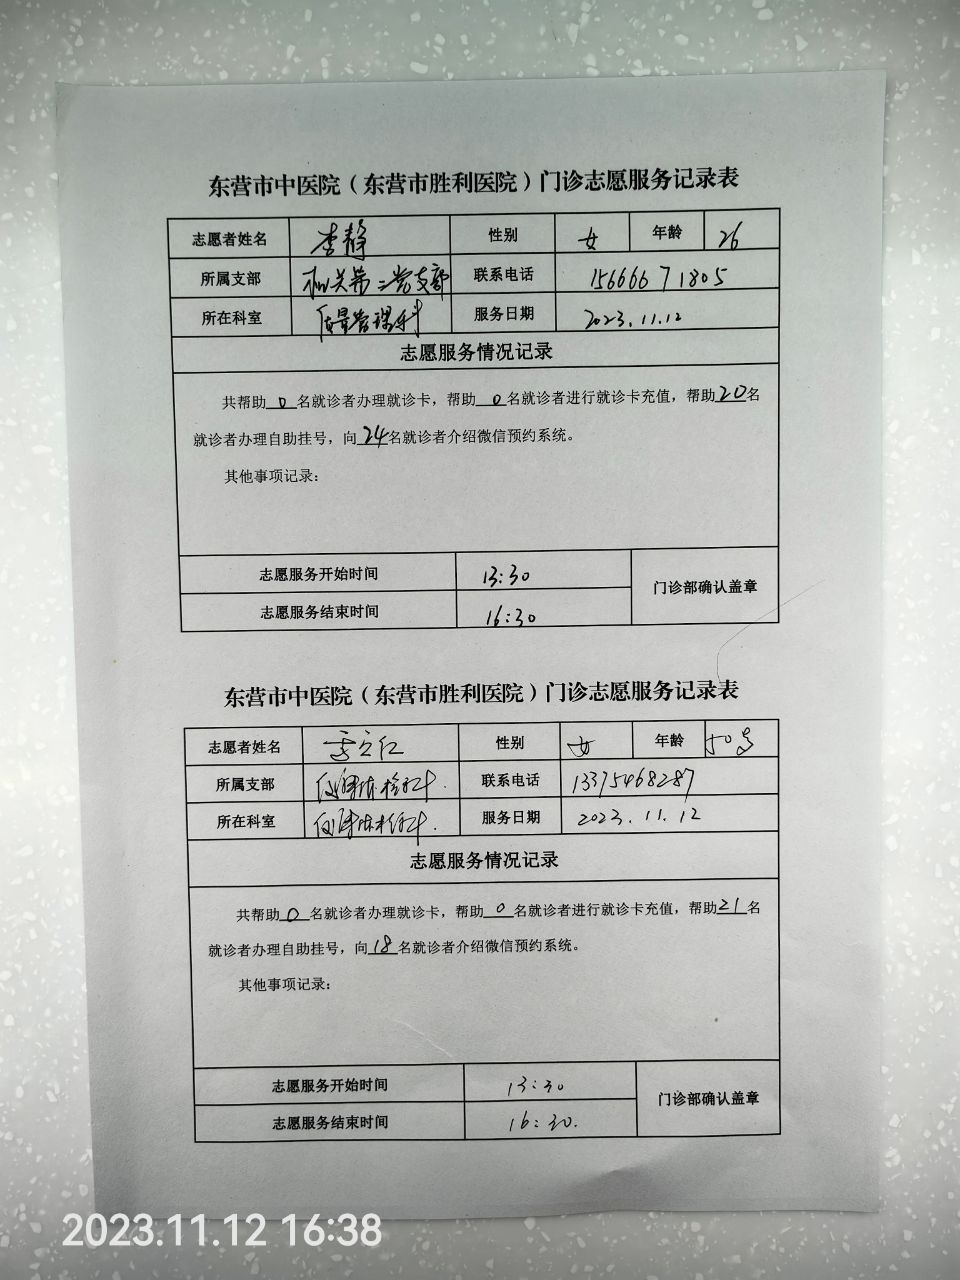 东营市中医院（东营市胜利医院）门诊志愿服务记录表
志愿者姓名 李静 性别 女 年龄 26
所属支部 机关第二党支部 联系电话 15666671805
所在科室 质量管理科 服务日期 2023.11.12
志愿服务情况记录
共帮助0名就诊者办理就诊卡，帮助0名就诊者进行就诊卡充值，帮助20名
就诊者办理自助挂号，向24名就诊者介绍微信预约系统。
其他事项记录：
志愿服务开始时间 13:30 门诊部确认盖章
志愿服务结束时间 16:30
东营市中医院（东营市胜利医院）门诊志愿服务记录表
志愿者姓名 李立红 性别 女 年龄 50岁
所属支部 联系电话 13375468287
所在科室 服务日期 2023.11.12
志愿服务情况记录
共帮助0名就诊者办理就诊卡，帮助0名就诊者进行就诊卡充值，帮助21名
就诊者办理自助挂号，向18名就诊者介绍微信预约系统。
其他事项记录：
志愿服务开始时间 13:30 门诊部确认盖章
志愿服务结束时间 16:30.
2023.11.12 16:38